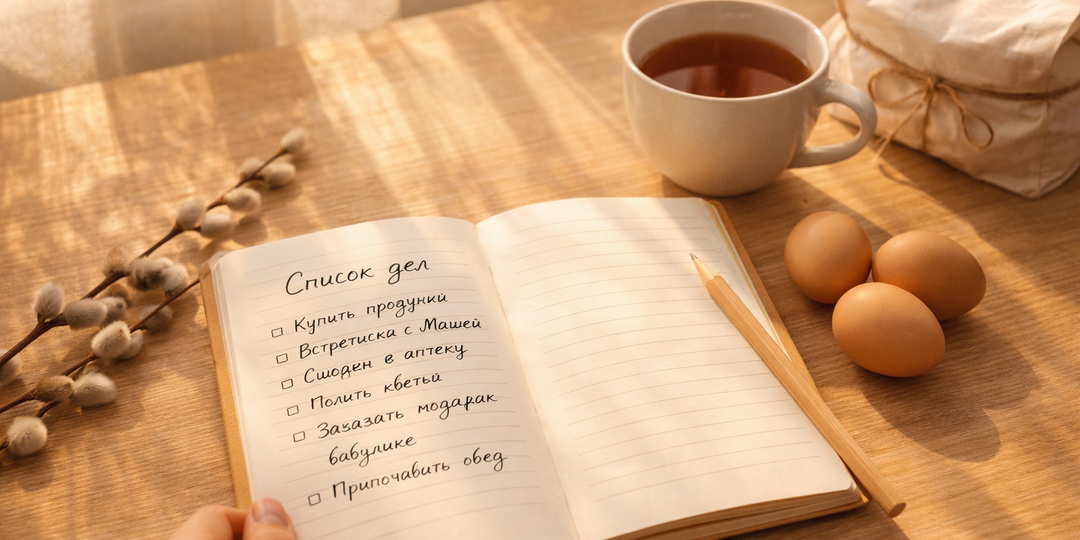 Список дел
☐ Купить продунки
☐ Встретиска с Машей
☐ Сшоден в аптеку
☐ Полить кветьй
☐ Заказать модарак
бабулике
☐ Припочавить обед